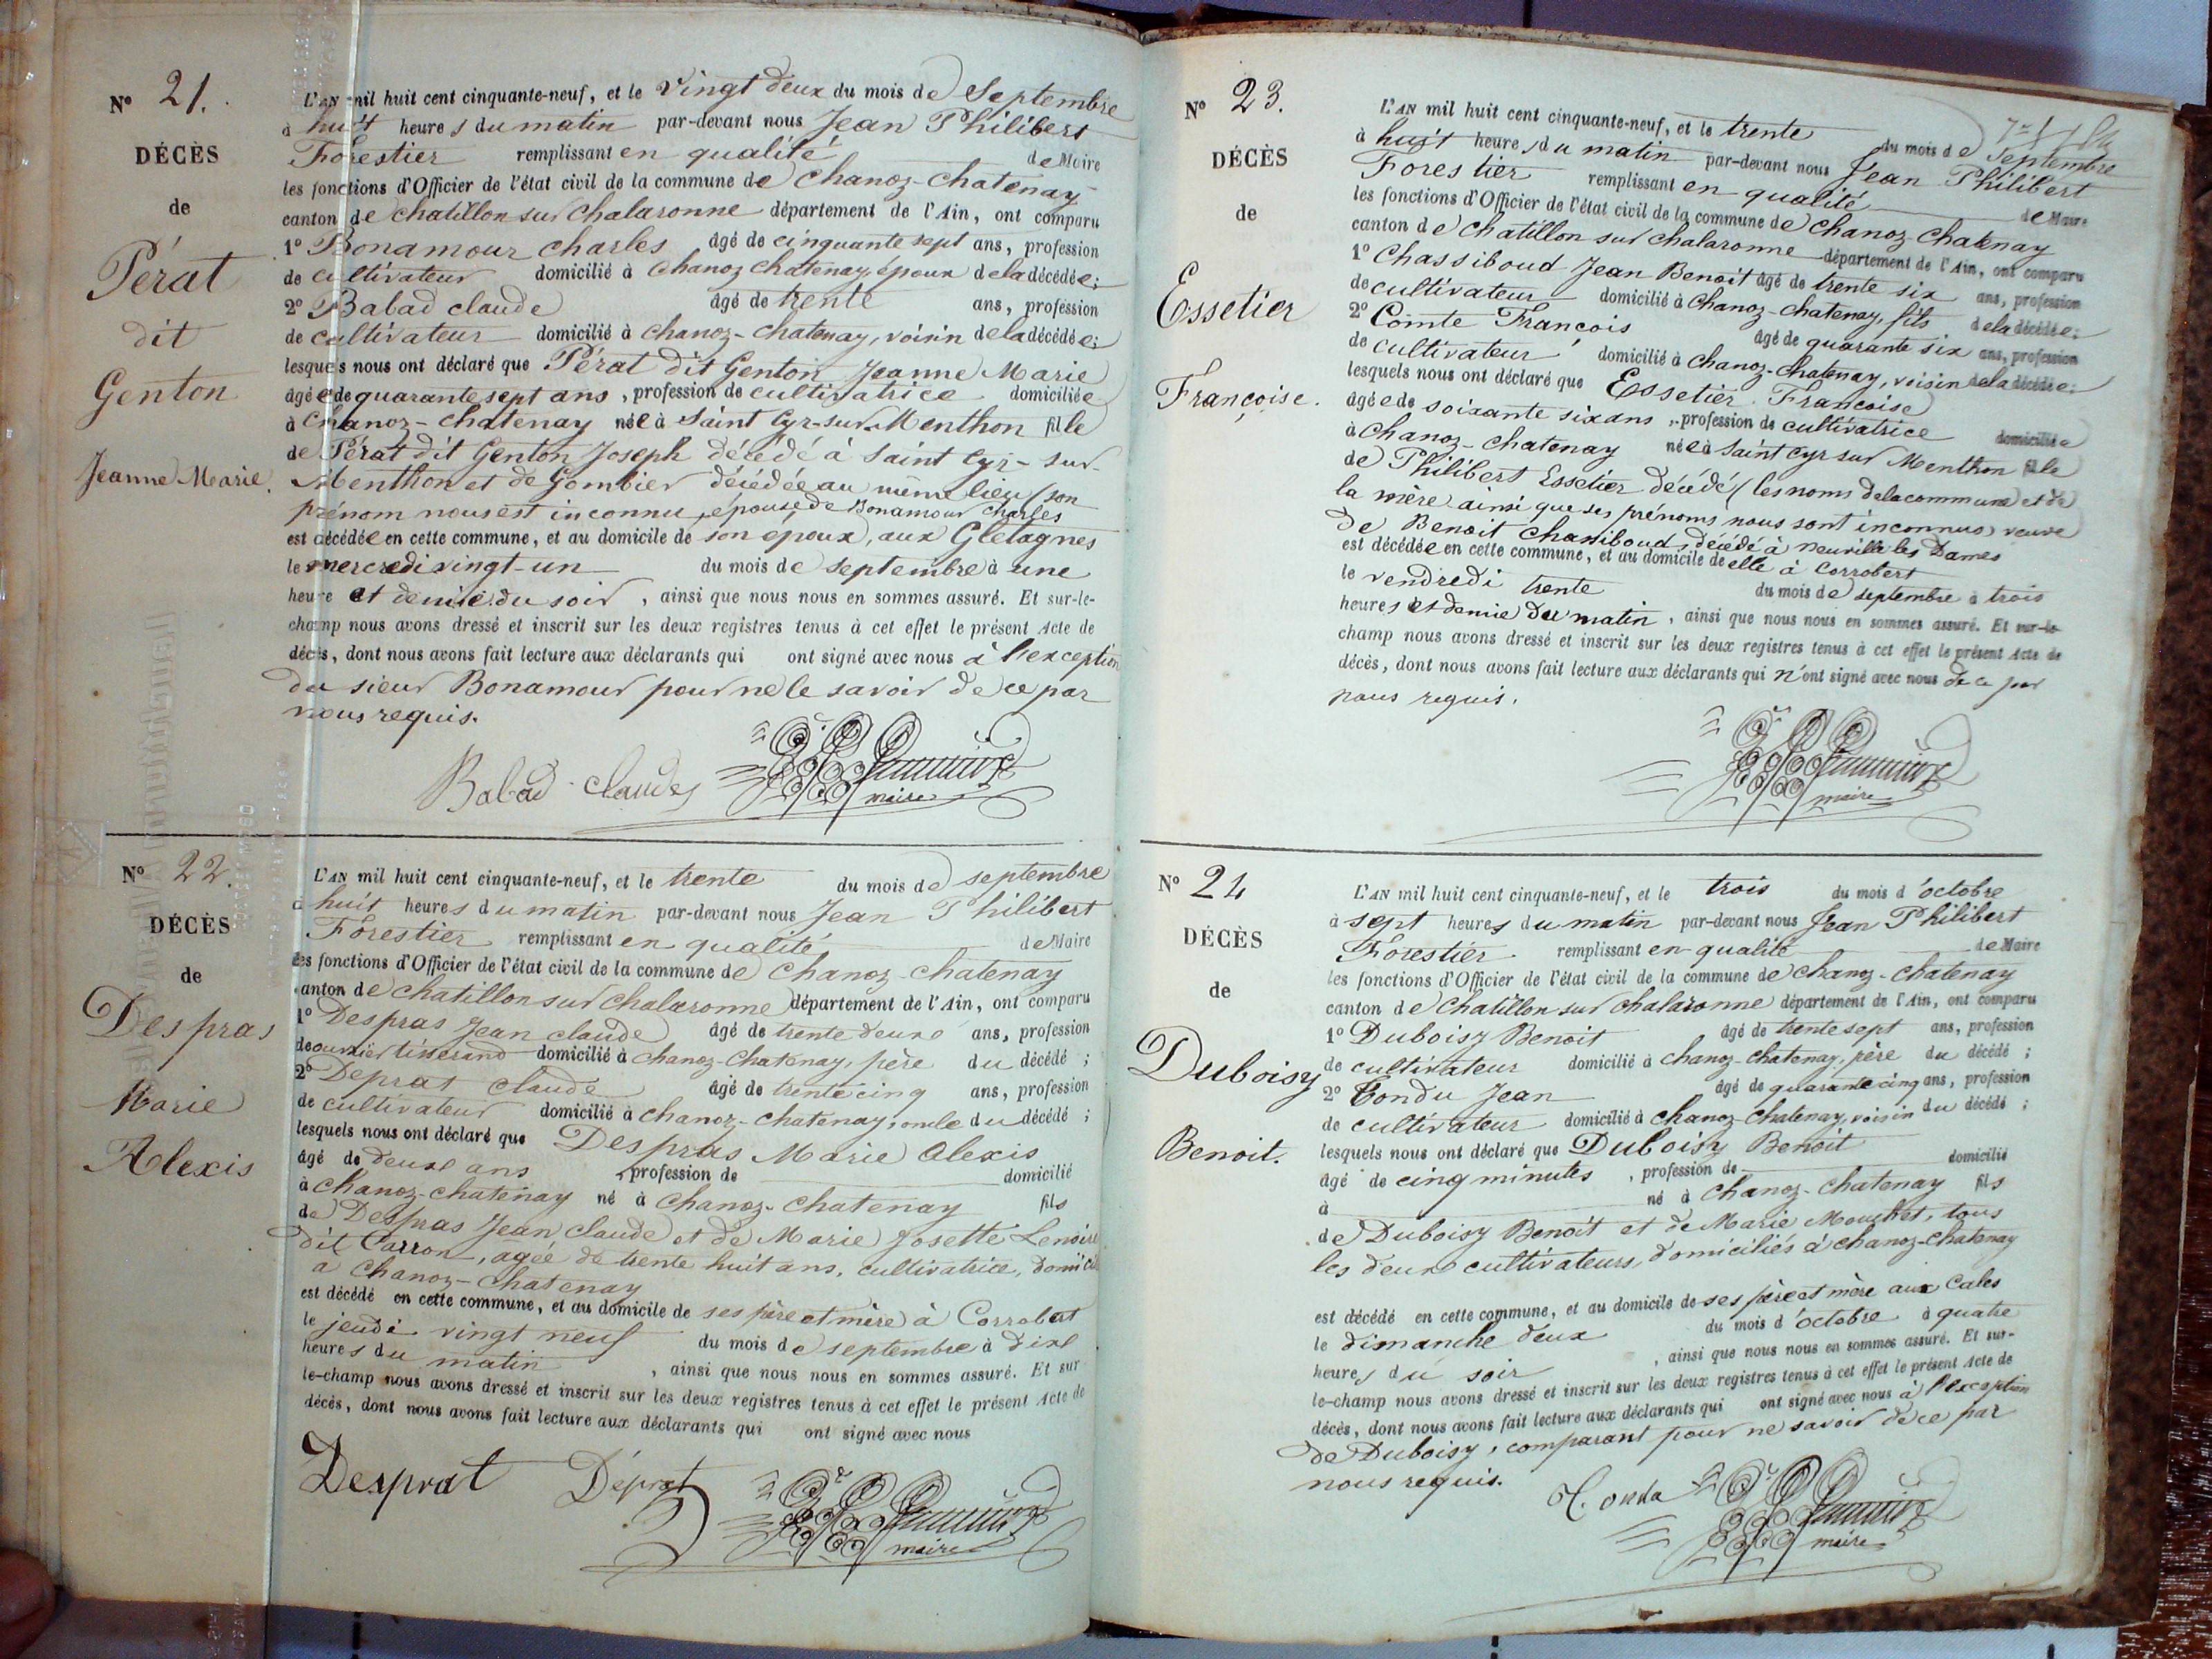 N° 21.
DÉCÈS
de
Pérat
dit
Genton
Jeanne Marie.
L'AN mil huit cent cinquante-neuf, et le vingt deux du mois de Septembre
à huit heures du matin par-devant nous Jean Philibert
Forestier remplissant en qualité de Maire
les fonctions d'Officier de l'état civil de la commune de Chanoz-Chatenay
canton de Chatillon sur Chalaronne département de l'Ain, ont comparu
1° Bonamour Charles âgé de cinquante sept ans, profession
de cultivateur domicilié à Chanoz Chatenay, époux de la décédée;
2° Babad claude âgé de trente ans, profession
de cultivateur domicilié à Chanoz-Chatenay, voisin de la décédée;
lesquels nous ont déclaré que Pérat dit Genton Jeanne Marie
âgée de quarante sept ans, profession de cultivatrice domiciliée
à Chanoz-Chatenay née à Saint Cyr-sur-Menthon fille
de Pérat dit Genton Joseph décédé à Saint Cyr-sur-
Menthon et de Gombier décédée au même lieu (son
prénom nous est inconnu, épouse de Bonamour Charles
est décédée en cette commune, et au domicile de son époux, aux Gletagnes
le mercredi vingt-un du mois de septembre à une
heure et demie du soir, ainsi que nous nous en sommes assuré. Et sur-le-
champ nous avons dressé et inscrit sur les deux registres tenus à cet effet le présent Acte de
décès, dont nous avons fait lecture aux déclarants qui ont signé avec nous à l'exception
du sieur Bonamour pour ne le savoir de ce par
nous requis.
Babad claude
maire
N° 22.
DÉCÈS
de
Despras
Marie
Alexis
L'AN mil huit cent cinquante-neuf, et le trente du mois de septembre
à huit heures du matin par-devant nous Jean Philibert
Forestier remplissant en qualité de Maire
les fonctions d'Officier de l'état civil de la commune de Chanoz-Chatenay
canton de Chatillon sur Chalaronne département de l'Ain, ont comparu
1° Despras Jean claude âgé de trente deux ans, profession
de ouvrier tisserand domicilié à Chanoz-Chatenay, père du décédé;
2° Deprat claude âgé de trente cinq ans, profession
de cultivateur domicilié à Chanoz-Chatenay, oncle du décédé;
lesquels nous ont déclaré que Despras Marie Alexis
âgé de deux ans, profession de domicilié
à Chanoz-Chatenay né à Chanoz-Chatenay fils
de Despras Jean Claude et de Marie Josette Lenoir
dit Carron, agée de trente huit ans, cultivatrice,
à Chanoz-Chatenay
est décédé en cette commune, et au domicile de ses père et mère à Corrobert
le jeudi vingt neuf du mois de septembre à dix
heures du matin, ainsi que nous nous en sommes assuré. Et sur
le-champ nous avons dressé et inscrit sur les deux registres tenus à cet effet le présent Acte de
décès, dont nous avons fait lecture aux déclarants qui ont signé avec nous
Desprat Déprat
maire
N° 23.
DÉCÈS
de
Essetier
Françoise.
L'AN mil huit cent cinquante-neuf, et le trente du mois de Septembre
à huit heures du matin par-devant nous Jean Philibert
Forestier remplissant en qualité de Maire
les fonctions d'Officier de l'état civil de la commune de Chanoz-Chatenay
canton de Chatillon sur Chalaronne département de l'Ain, ont comparu
1° Chassiboud Jean Benoit âgé de trente six ans, profession
de cultivateur domicilié à Chanoz-Chatenay, fils de la décédée;
2° Comte François âgé de quarante six ans, profession
de cultivateur domicilié à Chanoz-Chatenay, voisin de la décédée;
lesquels nous ont déclaré que Essetier Françoise
âgée de soixante six ans, profession de cultivatrice domiciliée
à Chanoz-Chatenay née à Saint Cyr sur Menthon fille
de Philibert Essetier décédé (les noms de la commune et de
la mère ainsi que ses prénoms nous sont inconnus) veuve
de Benoit Chassiboud, décédé à Neuville les Dames
est décédée en cette commune, et au domicile de elle à Corrobert
le vendredi trente du mois de septembre à trois
heures et demie du matin, ainsi que nous nous en sommes assuré. Et sur-le-
champ nous avons dressé et inscrit sur les deux registres tenus à cet effet le présent Acte de
décès, dont nous avons fait lecture aux déclarants qui n'ont signé avec nous de ce par
nous requis.
maire
N° 24
DÉCÈS
de
Duboisy
Benoit.
L'AN mil huit cent cinquante-neuf, et le trois du mois d'octobre
à sept heures du matin par-devant nous Jean Philibert
Forestier remplissant en qualité de Maire
les fonctions d'Officier de l'état civil de la commune de Chanoz-Chatenay
canton de Chatillon sur Chalaronne département de l'Ain, ont comparu
1° Duboisy Benoit âgé de trente sept ans, profession
de cultivateur domicilié à Chanoz-Chatenay, père du décédé;
2° Condu Jean âgé de quarante cinq ans, profession
de cultivateur domicilié à Chanoz-Chatenay, voisin du décédé;
lesquels nous ont déclaré que Duboisy Benoit
âgé de cinq minutes, profession de domicilié
à né à Chanoz-Chatenay fils
de Duboisy Benoit et de Marie Mouchet, tous
les deux cultivateurs, domiciliés à Chanoz-Chatenay
est décédé en cette commune, et au domicile de ses père et mère aux Cales
le dimanche deux du mois d'octobre à quatre
heures du soir, ainsi que nous nous en sommes assuré. Et sur-
le-champ nous avons dressé et inscrit sur les deux registres tenus à cet effet le présent Acte de
décès, dont nous avons fait lecture aux déclarants qui ont signé avec nous à l'exception
de Duboisy, comparant pour ne savoir de ce par
nous requis.
maire